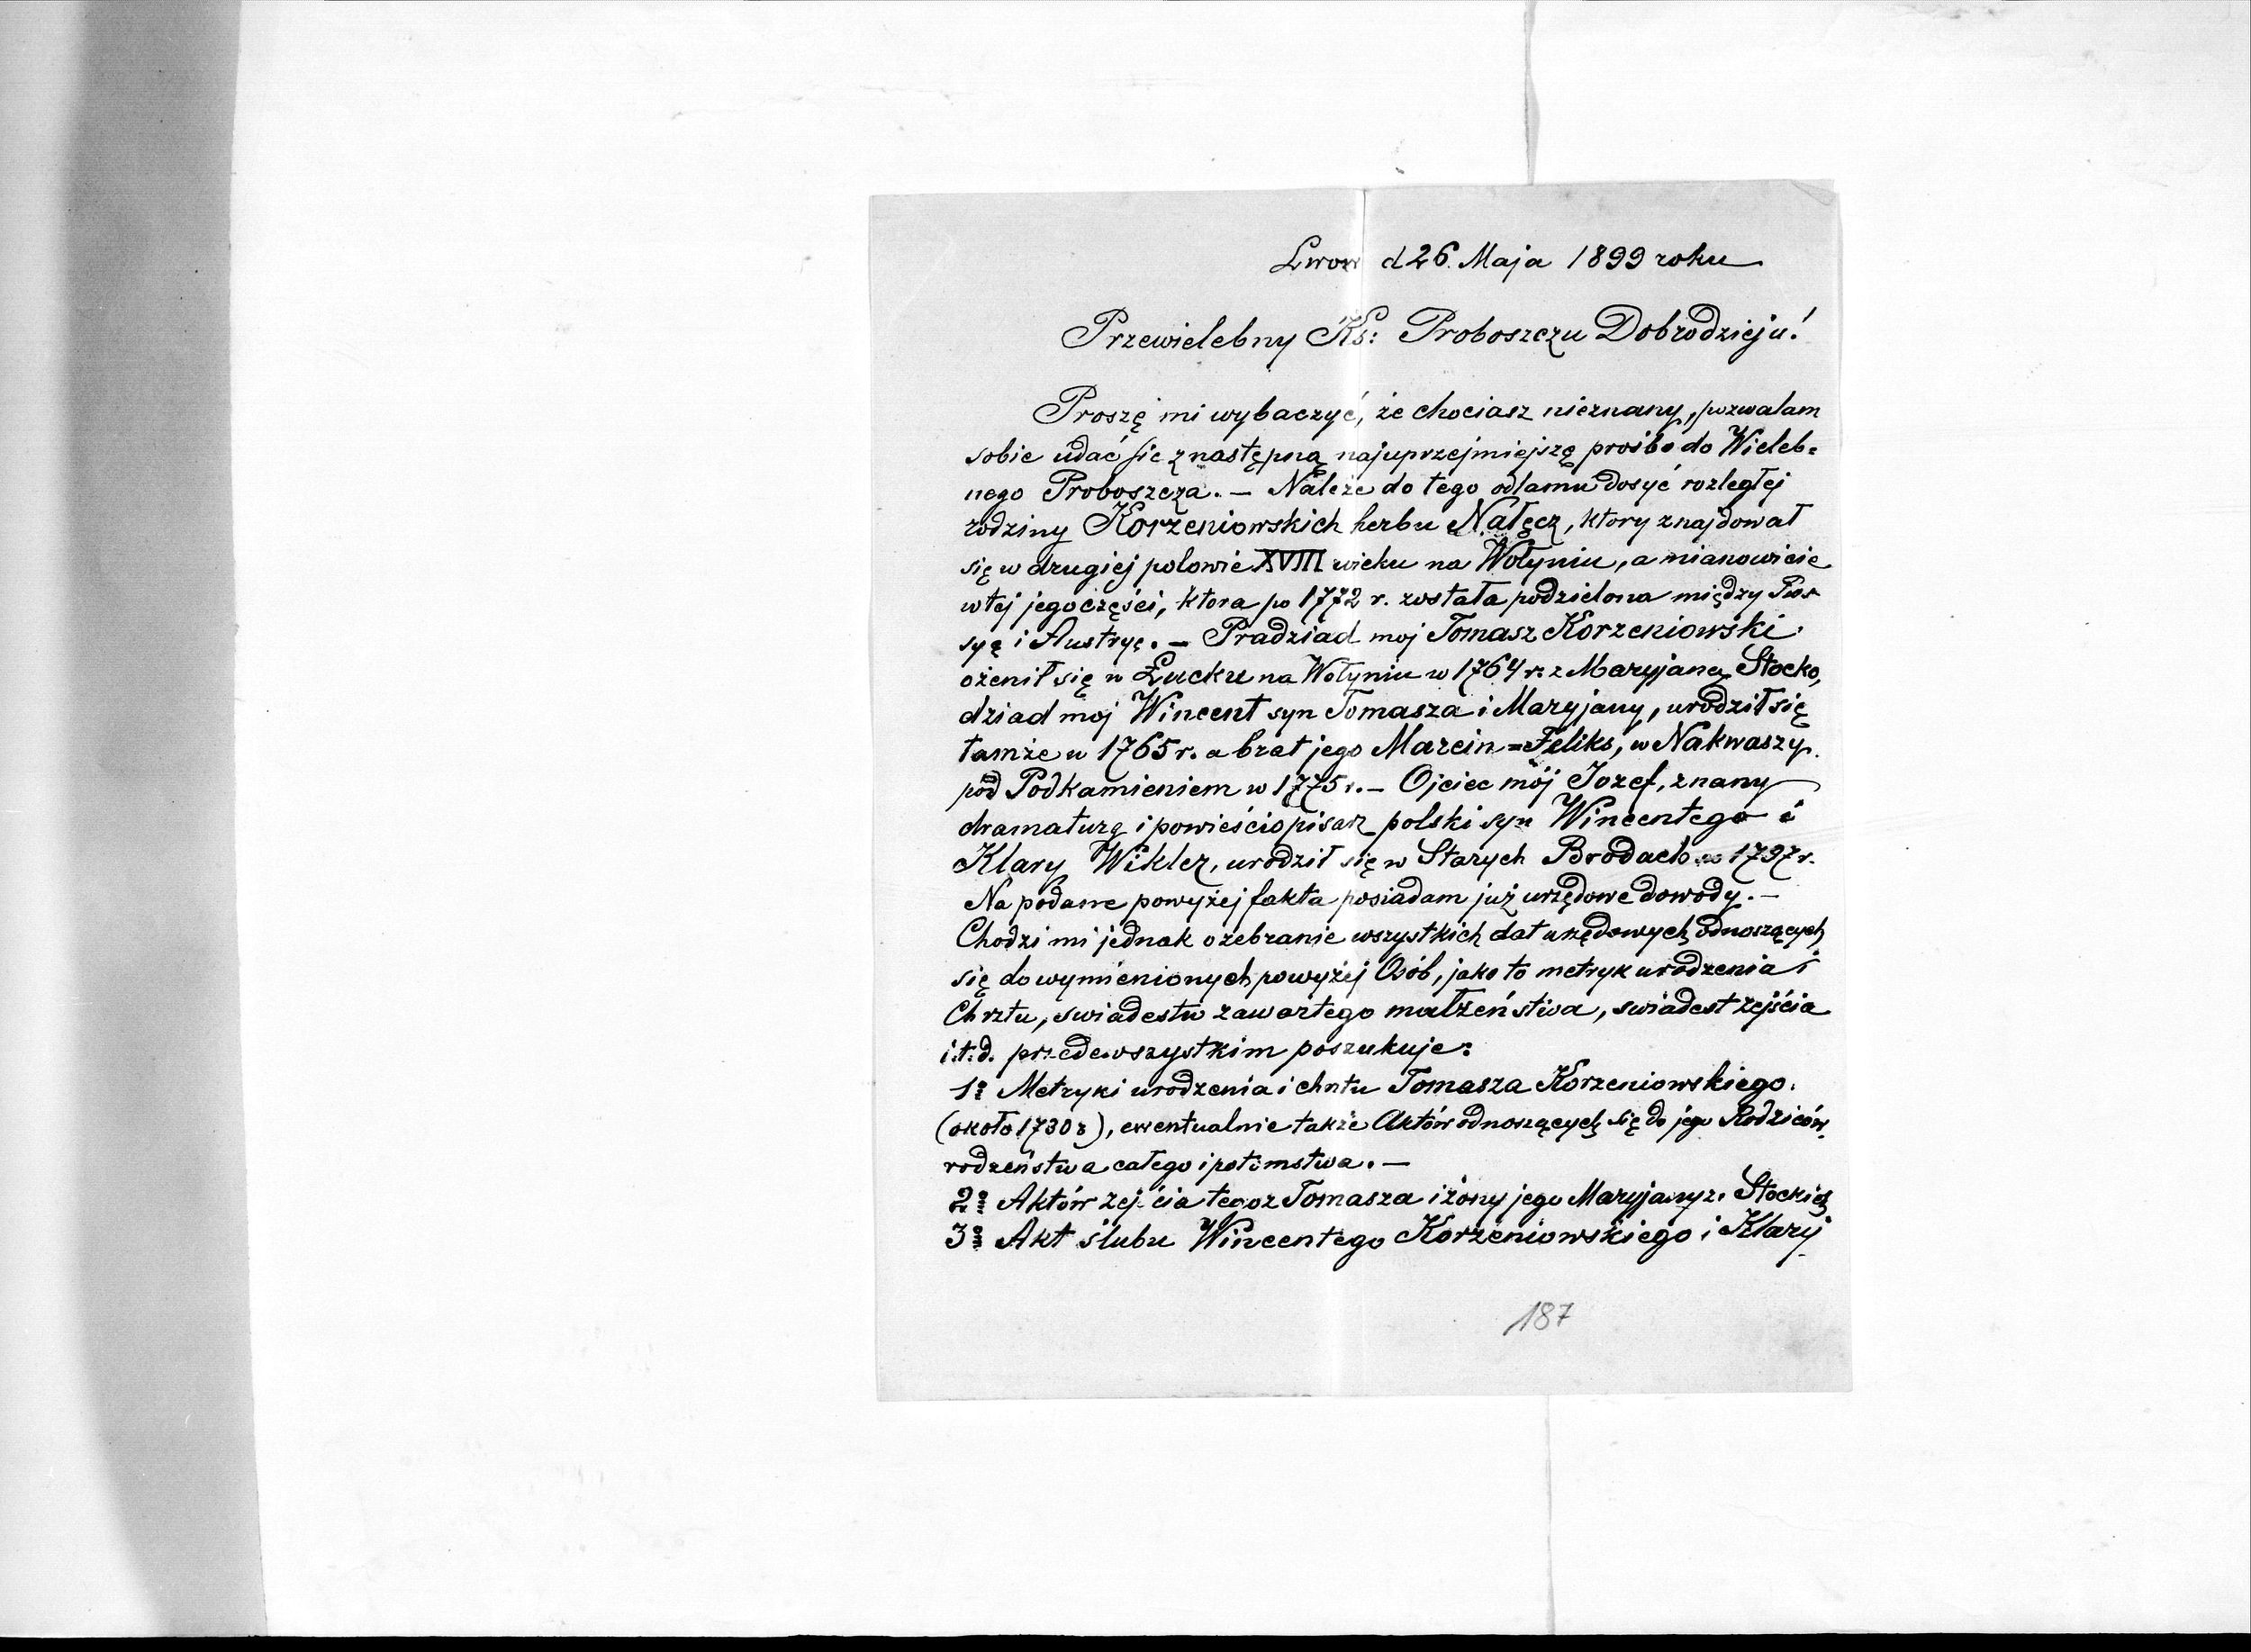 Lwow d 26. Maja 1899 roku
Przewielebny Ks: Proboszczu Dobrodzieju!
Proszę mi wybaczyć, że chociasz nieznany, pozwalam
sobie udać się z następną najuprzejmiejszą prośbo do Wieleb=
nego Proboszcza. — Należe do tego odlamu dosyć rozległej
rodziny Korzeniowskich herbu Nałęcz, ktory znajdował
się w drugiej polowie XVIII wieku na Wołyniu, a mianowicie
w tej jego części, ktora po 1772 r. została podzielona między Ros
syę i Austryę. — Pradziad moj Tomasz Korzeniowski
ożenił się w Łucku na Wołyniu w 1764 r. z Maryjaną Stocko,
dziad moj Wincent syn Tomasza i Maryjany, urodził się
tamże w 1765 r. a brat jego Marcin=Feliks, w Nakwaszy
pod Podkamieniem w 1775 r. — Ojciec mój Jozef, znany
dramaturg i powieściopisarz polski syn Wincentego i
Klary Wikler, urodził się w Starych Brodach w 1797 r.
Na podane powyżej fakta posiadam już urzędowe dowody. —
Chodzi mi jednak o zebranie wszystkich dat urzędowych odnoszących
się do wymienionych powyżej Osób, jako to metryk urodzenia i
Chrztu, swiadestw zawartego małżeństwa, swiadest zejścia
i.t.d. przedewszystkim poszukuje:
1o Metryki urodzenia i chrztu Tomasza Korzeniowskiego.
(około 1730 r), ewentualnie także Aktów odnoszących się do jego Rodziców,
rodzeństwa całego i potomstwa. —
2o Aktów zejścia tegoz Tomasza i żony jego Maryjany z. Stockich
3o Akt ślubu Wincentego Korzeniowskiego i Klary
187